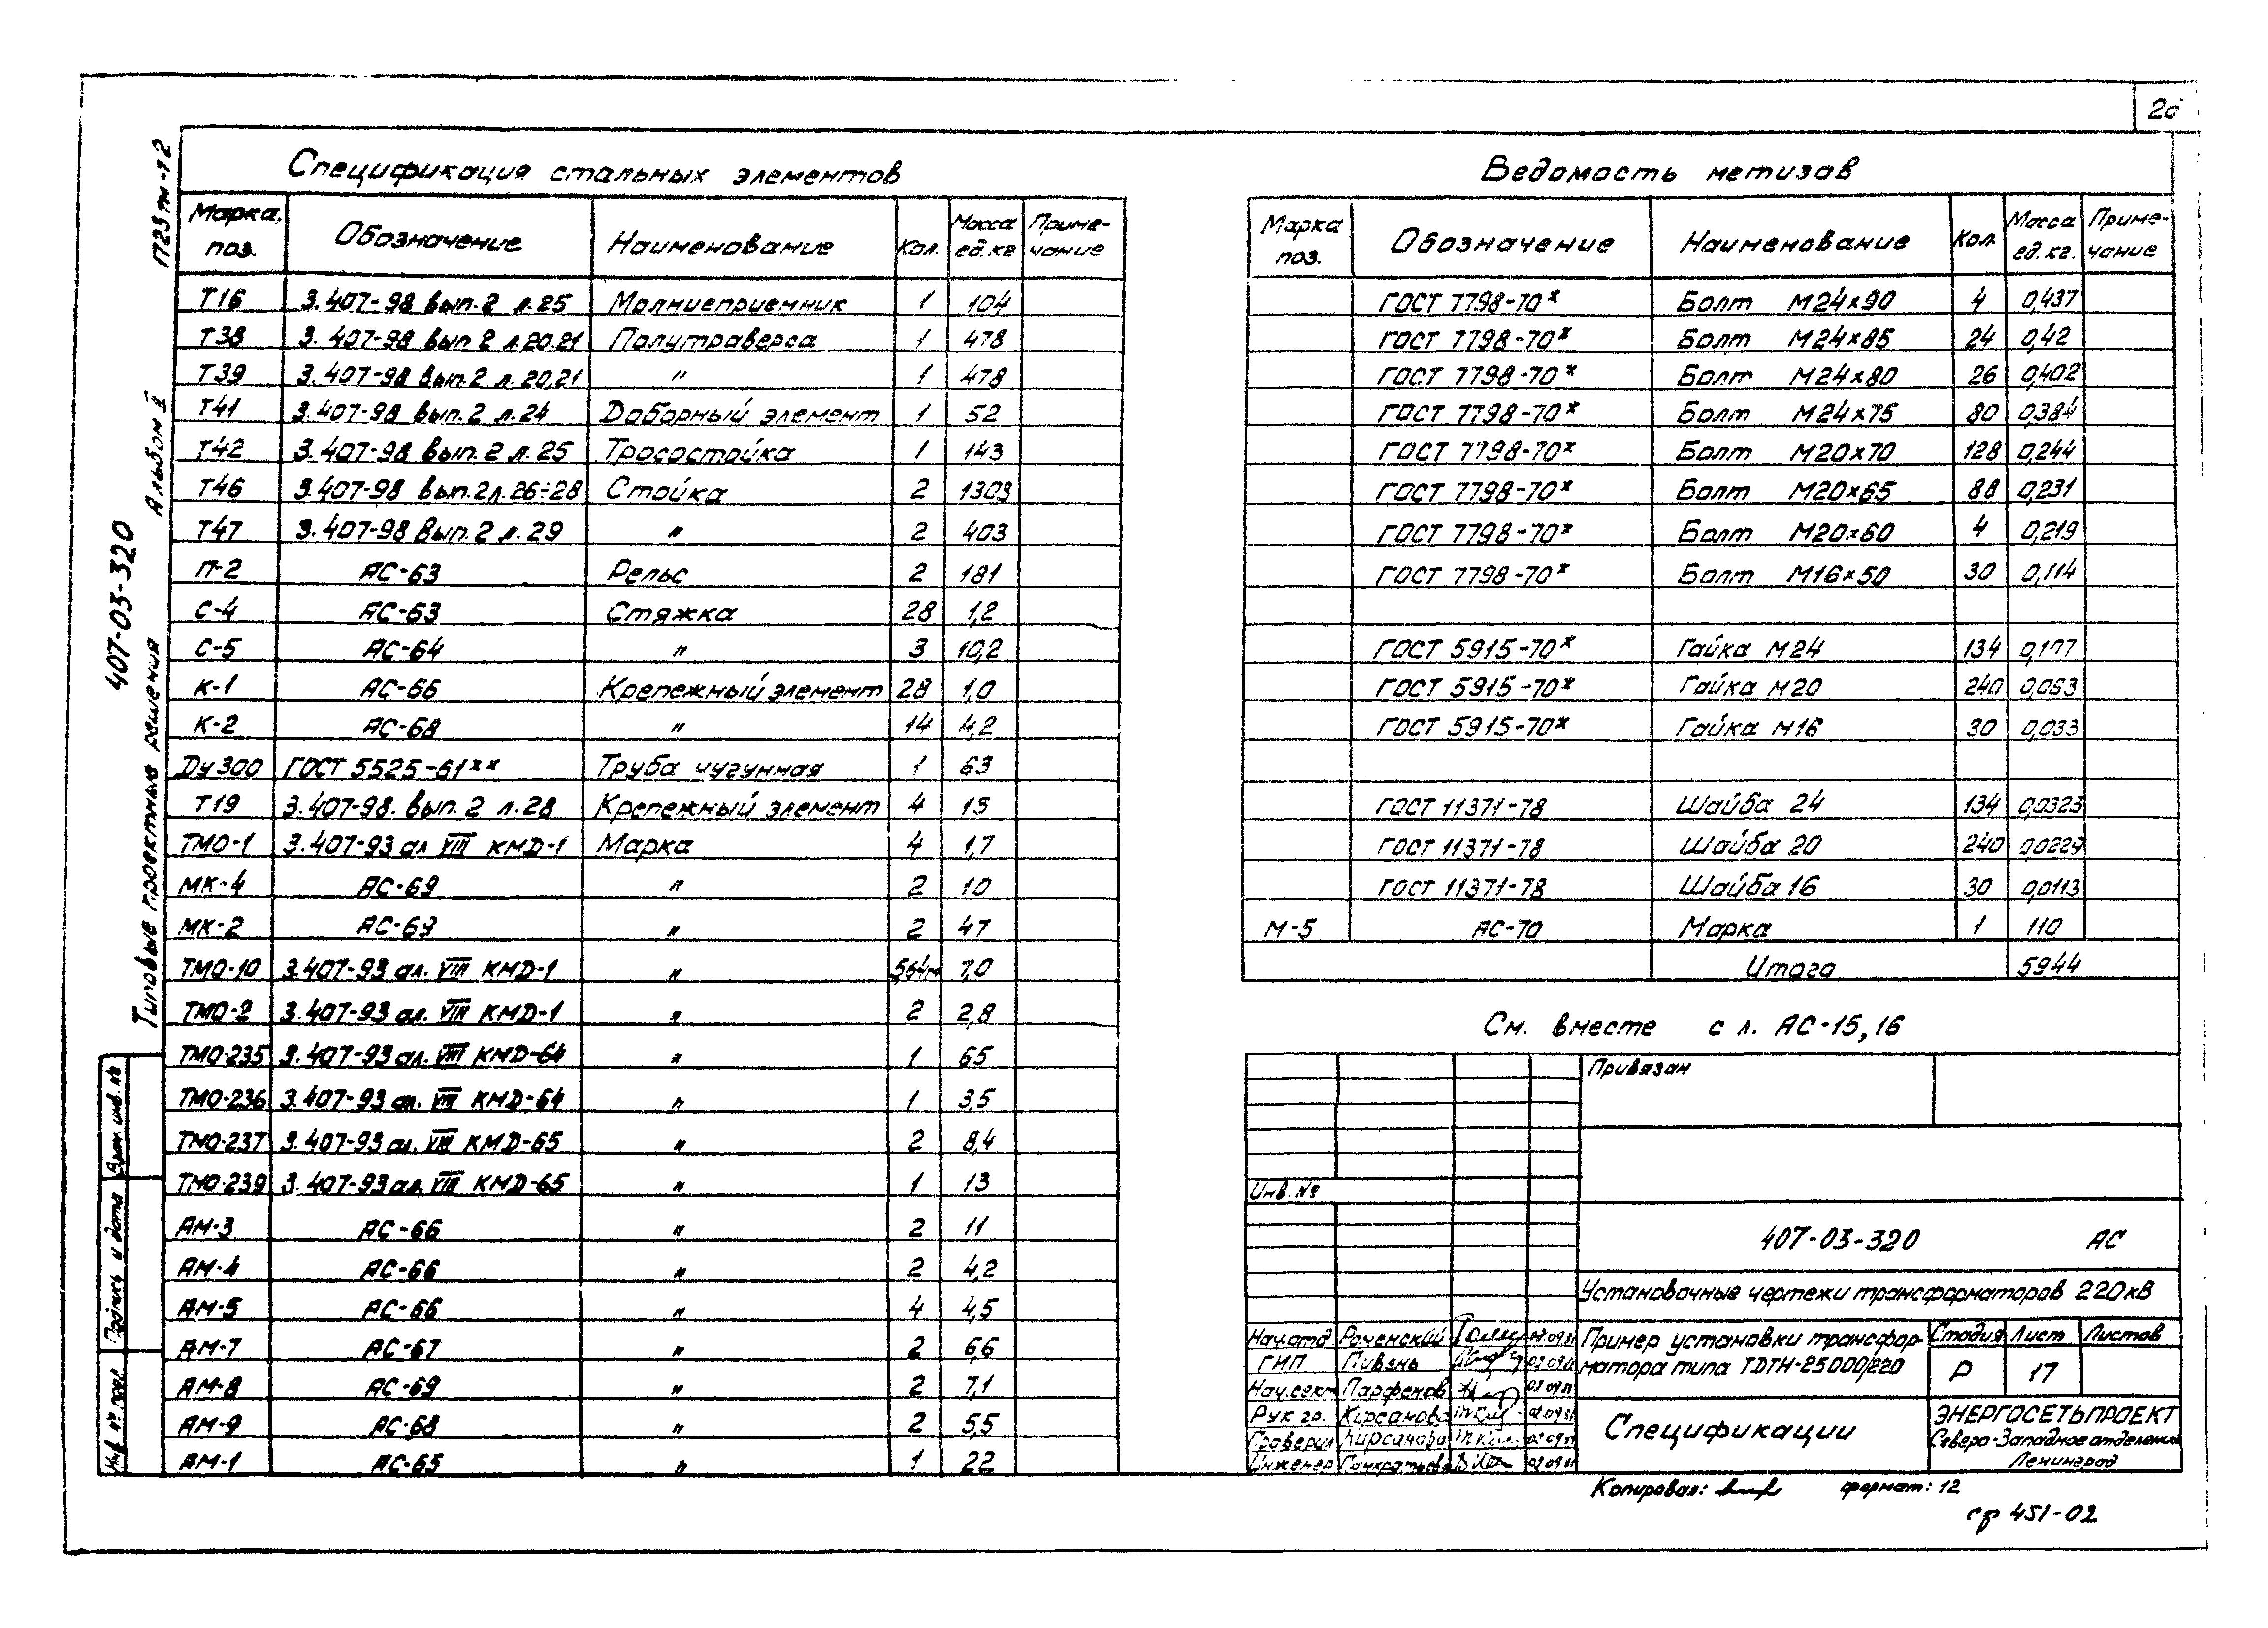 Спецификация стальных элементов
Марка, поз. Обозначение Наименование Кол. Масса ед.кг Приме-чание
Т16 3.407-98 вып.2 л.25 Молниеприемник 1 104
Т38 3.407-98 вып 2 л.20.21 Полутраверса 1 478
Т39 3.407-98 вып.2 л.20,21 " 1 478
Т41 3.407-98 вып.2 л.24 Доборный элемент 1 52
Т42 3.407-98 вып.2 л.25 Тросостойка 1 143
Т46 3.407-98 вып.2л.26÷28 Стойка 2 1303
Т47 3.407-98 вып.2 л.29 " 2 403
П-2 АС-63 Рельс 2 181
С-4 АС-63 Стяжка 28 1,2
С-5 АС-64 " 3 10,2
К-1 АС-66 Крепежный элемент 28 1,0
К-2 АС-68 " 14 4,2
Ду300 ГОСТ 5525-61ˣˣ Труба чугунная 1 63
Т19 3.407-98. вып.2 л.28 Крепежный элемент 4 13
ТМО-1 3.407-93 ал VIII КМД-1 Марка 4 1,7
МК-4 АС-69 " 2 10
МК-2 АС-69 " 2 47
ТМО-10 3.407-93 ал. VIII КМД-1 " 5,64м 7,0
ТМО-2 3.407-93 ал. VIII КМД-1 " 2 2,8
ТМО-235 3.407-93 ал. VIII КМД-64 " 1 65
ТМО-236 3.407-93 ал. VIII КМД-64 " 1 3,5
ТМО-237 3.407-93 ал. VIII КМД-65 " 2 8,4
ТМО-239 3.407-93 ал. VIII КМД-65 " 1 13
АМ-3 АС-66 " 2 11
АМ-4 АС-66 " 2 4,2
АМ-5 АС-66 " 4 4,5
АМ-7 АС-67 " 2 6,6
АМ-8 АС-69 " 2 7,1
АМ-9 АС-68 " 2 5,5
АМ-1 АС-65 " 1 22
Ведомость метизов
Марка поз. Обозначение Наименование Кол. Масса ед.кг. Приме-чание
ГОСТ 7798-70ˣ Болт М24×90 4 0,437
ГОСТ 7798-70ˣ Болт М24×85 24 0,42
ГОСТ 7798-70ˣ Болт М24×80 26 0,402
ГОСТ 7798-70ˣ Болт М24×75 80 0,384
ГОСТ 7798-70ˣ Болт М20×70 128 0,244
ГОСТ 7798-70ˣ Болт М20×65 88 0,231
ГОСТ 7798-70ˣ Болт М20×60 4 0,219
ГОСТ 7798-70ˣ Болт М16×50 30 0,114
ГОСТ 5915-70ˣ Гайка М24 134 0,107
ГОСТ 5915-70ˣ Гайка М20 240 0,063
ГОСТ 5915-70ˣ Гайка М16 30 0,033
ГОСТ 11371-78 Шайба 24 134 0,0323
ГОСТ 11371-78 Шайба 20 240 0,0229
ГОСТ 11371-78 Шайба 16 30 0,0113
М-5 АС-70 Марка 1 110
Итого 5944
См. вместе с л. АС-15,16
Привязан
Инв. №
407-03-320 АС
Установочные чертежи трансформаторов 220кВ
Пример установки трансфор-
матора типа ТДТН-25000/220
Стадия Лист Листов
Р 17
Спецификации
ЭНЕРГОСЕТЬПРОЕКТ
Северо-Западное отделение
Ленинград
Нач.отд. Роменский
ГИП Пивень
Нач.сект Парфенов
Рук гр. Кирсанова
Проверил Кирсанова
Инженер
Копировал: формат: 12
сф 451-02
407-03-320
Типовые проектные решения Альбом II
1723тм-т2
Взам. инв. №
Подпись и дата
Инв № подл